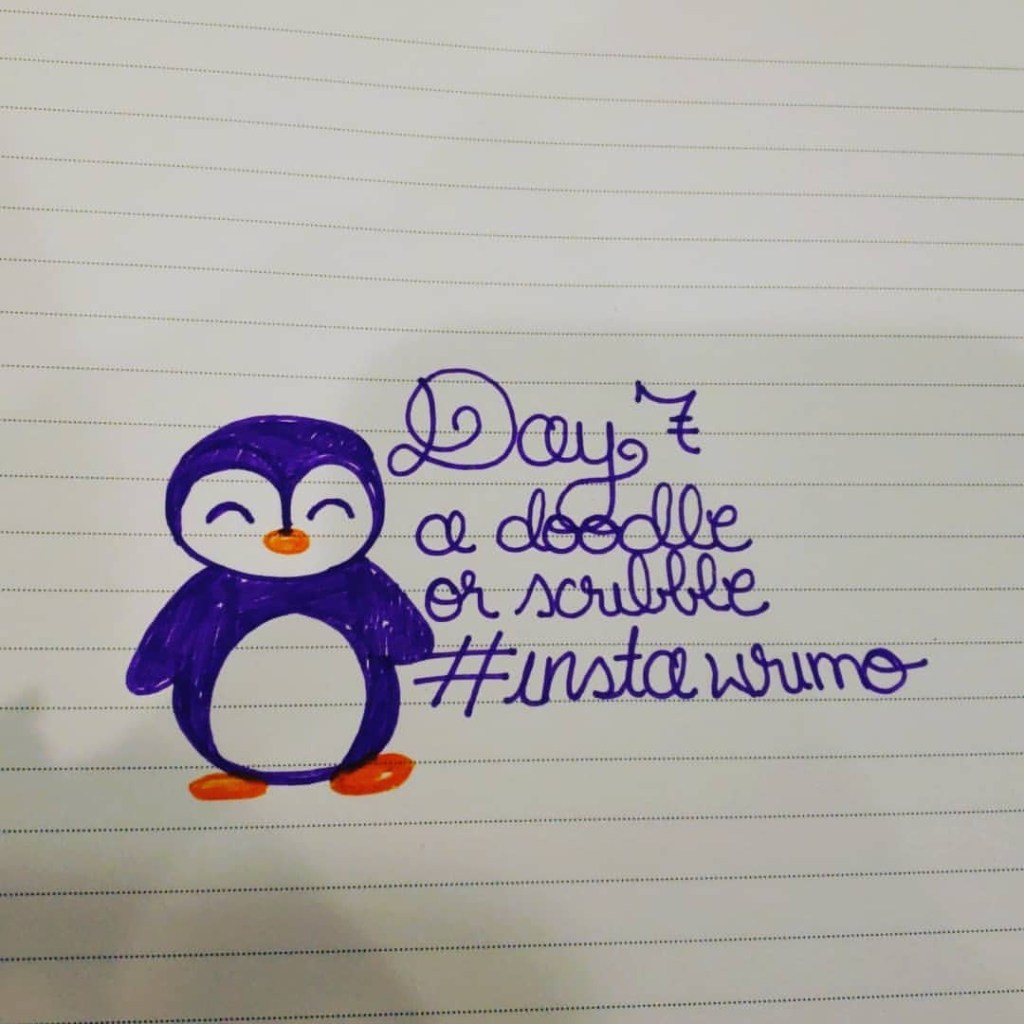 Day 7
a doodle
or scribble
#instawrimo